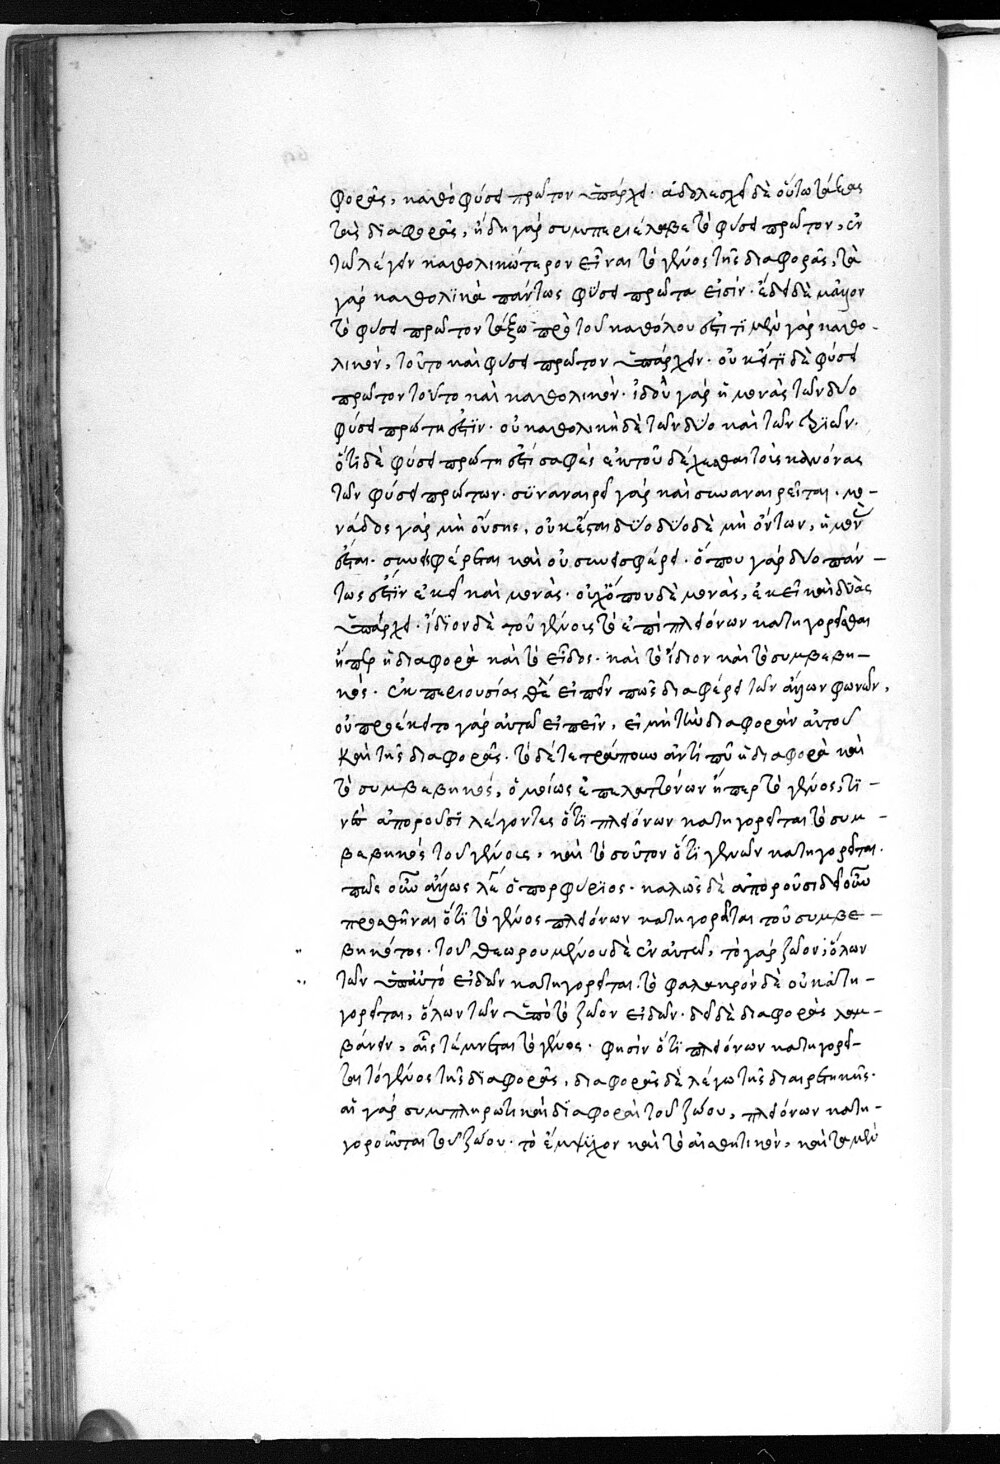 φορᾶς, καθὸ φύσει πρῶτον ὑπάρχει. ἀδολεσχεῖ δὲ οὕτω τάξας
τὰς διαφορᾶς, ἤδη γὰρ συμπεριέλαβε τὸ φύσει πρῶτον, ἐν
τῷ λέγειν καθολικώτερον εἶναι τὸ γένος τῆς διαφορᾶς, τὰ
γὰρ καθολικὰ πάντως φύσει πρῶτα εἰσίν. ἔδει δὲ μᾶλλον
τὸ φύσει πρῶτον τάξαι πρὸ τοῦ καθόλου ἐστὶ τι μὲν γὰρ καθο-
λικὸν, τοῦτο καὶ φύσει πρῶτον ὑπάρχειν. οὐκ ἔτι δὲ φύσει
πρῶτον τοῦτο καὶ καθολικὸν. ἰδοὺ γὰρ ἡ μονὰς τῶν δύο
φύσει πρώτη ἐστὶν. οὐ καθολικὴ δὲ τῶν δύο καὶ τῶν τριῶν.
ὅτι δὲ φύσει πρώτη ἐστὶ σαφὲς ἐκ τοῦ δέχεσθαι τοὺς κανόνας
τῶν φύσει πρώτων. συναναιρεῖ γὰρ καὶ συναναιρεῖται. μο-
νάδος γὰρ μὴ οὔσης, οὐκ ἔσται δύο δύο δὲ μὴ ὄντων, ἡ μονὰς
ἔσται. συνεισφέρεται καὶ οὐ συνεισφέρει. ὅπου γὰρ δύο πάν-
τως ἐστὶν ἐκεῖ καὶ μονὰς. οὐχ ὅπου δὲ μονὰς, ἐκεῖ καὶ δυὰς
ὑπάρχει. ἴδιον δὲ τοῦ γένους τὸ ἐπὶ πλειόνων κατηγορεῖσθαι
ἤπερ ἡ διαφορὰ καὶ τὸ εἶδος. καὶ τὸ ἴδιον καὶ τὸ συμβεβη-
κὸς. ἐκ περιουσίας θέλει εἰπεῖν πῶς διαφέρει τῶν ἄλλων φωνῶν,
οὐ προέκειτο γὰρ αὐτῷ εἰπεῖν, εἰ μὴ τὴν διαφορὰν αὐτοῦ
καὶ τῆς διαφορᾶς. τὸ δὲ τετράπουν ἀντὶ τοῦ ἡ διαφορὰ καὶ
τὸ συμβεβηκός, ὁμοίως ἐπ' ἐλαττόνων ἤπερ τὸ γένος, τι-
νὲς ἀποροῦσι λέγοντες ὅτι πλειόνων κατηγορεῖται τὸ συμ-
βεβηκὸς τοῦ γένους, καὶ τοσοῦτον ὅτι γενῶν κατηγορεῖται.
πῶς οὖν ἄλλως λέγει ὁ πορφύριος. καλῶς δὲ ἀποροῦσι δεῖ οὖν
προσθῆναι ὅτι τὸ γένος πλειόνων κατηγορεῖται τοῦ συμβε-
βηκότος. τοῦ θεωρουμένου δὲ ἐν αὐτῷ, τὸ γὰρ ζῶον, ὅλων
τῶν ὑπ' αὐτό εἰδῶν κατηγορεῖται. τὸ φαλακρόν δὲ οὐ κατη-
γορεῖται, ὅλων τῶν ὑπὸ τὸ ζῶον εἰδῶν. δεῖ δὲ διαφορὰς λαμ-
βάνειν, αἷς τέμνεται τὸ γένος. φησὶν ὅτι πλειόνων κατηγορεῖ-
ται τὸ γένος τῆς διαφορᾶς, διαφορᾶς δὲ λέγω τῆς διαιρετικῆς.
αἱ γὰρ συμπληρωτικαὶ διαφοραὶ τοῦ ζώου, πλειόνων κατη-
γοροῦνται τοῦ ζώου. τὸ ἔμψυχον καὶ τὸ αἰσθητικὸν, καὶ τὰ μὲν